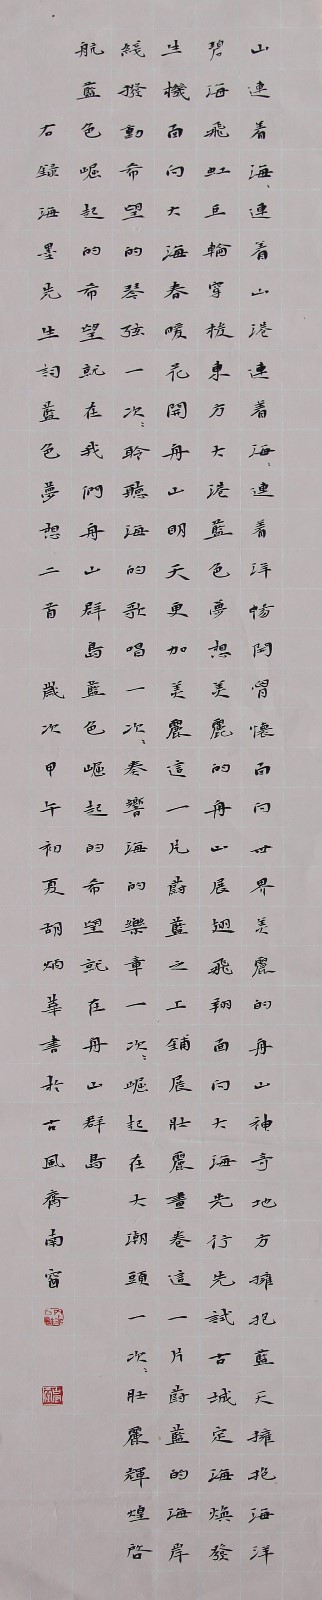 山連着海、連着山港連着海、連着洋暢開胷懷面向世界美麗的舟山神奇地方擁抱藍天擁抱海洋
碧海飛虹巨輪穿梭東方大港藍色夢想美麗的舟山展翅飛翔面向大海先行先試古城定海煥發
生機面向大海春暖花開舟山明天更加美麗這一片蔚藍之上鋪展壯麗畫卷這一片蔚藍的海岸
綫撥動希望的琴弦一次、聆聽海的歌唱一次、奏響海的樂章一次、崛起在大潮頭一次、壯麗輝煌啓
航藍色崛起的希望就在我們舟山群島藍色崛起的希望就在舟山群島
右錄海墨先生詞藍色夢想二首 歲次甲午初夏胡炳華書於古風齋南窗